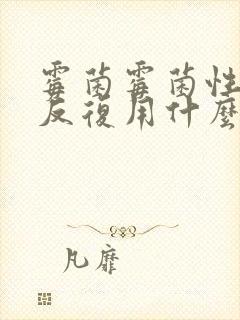 霉菌霉菌性
反復用什麼
凡靡